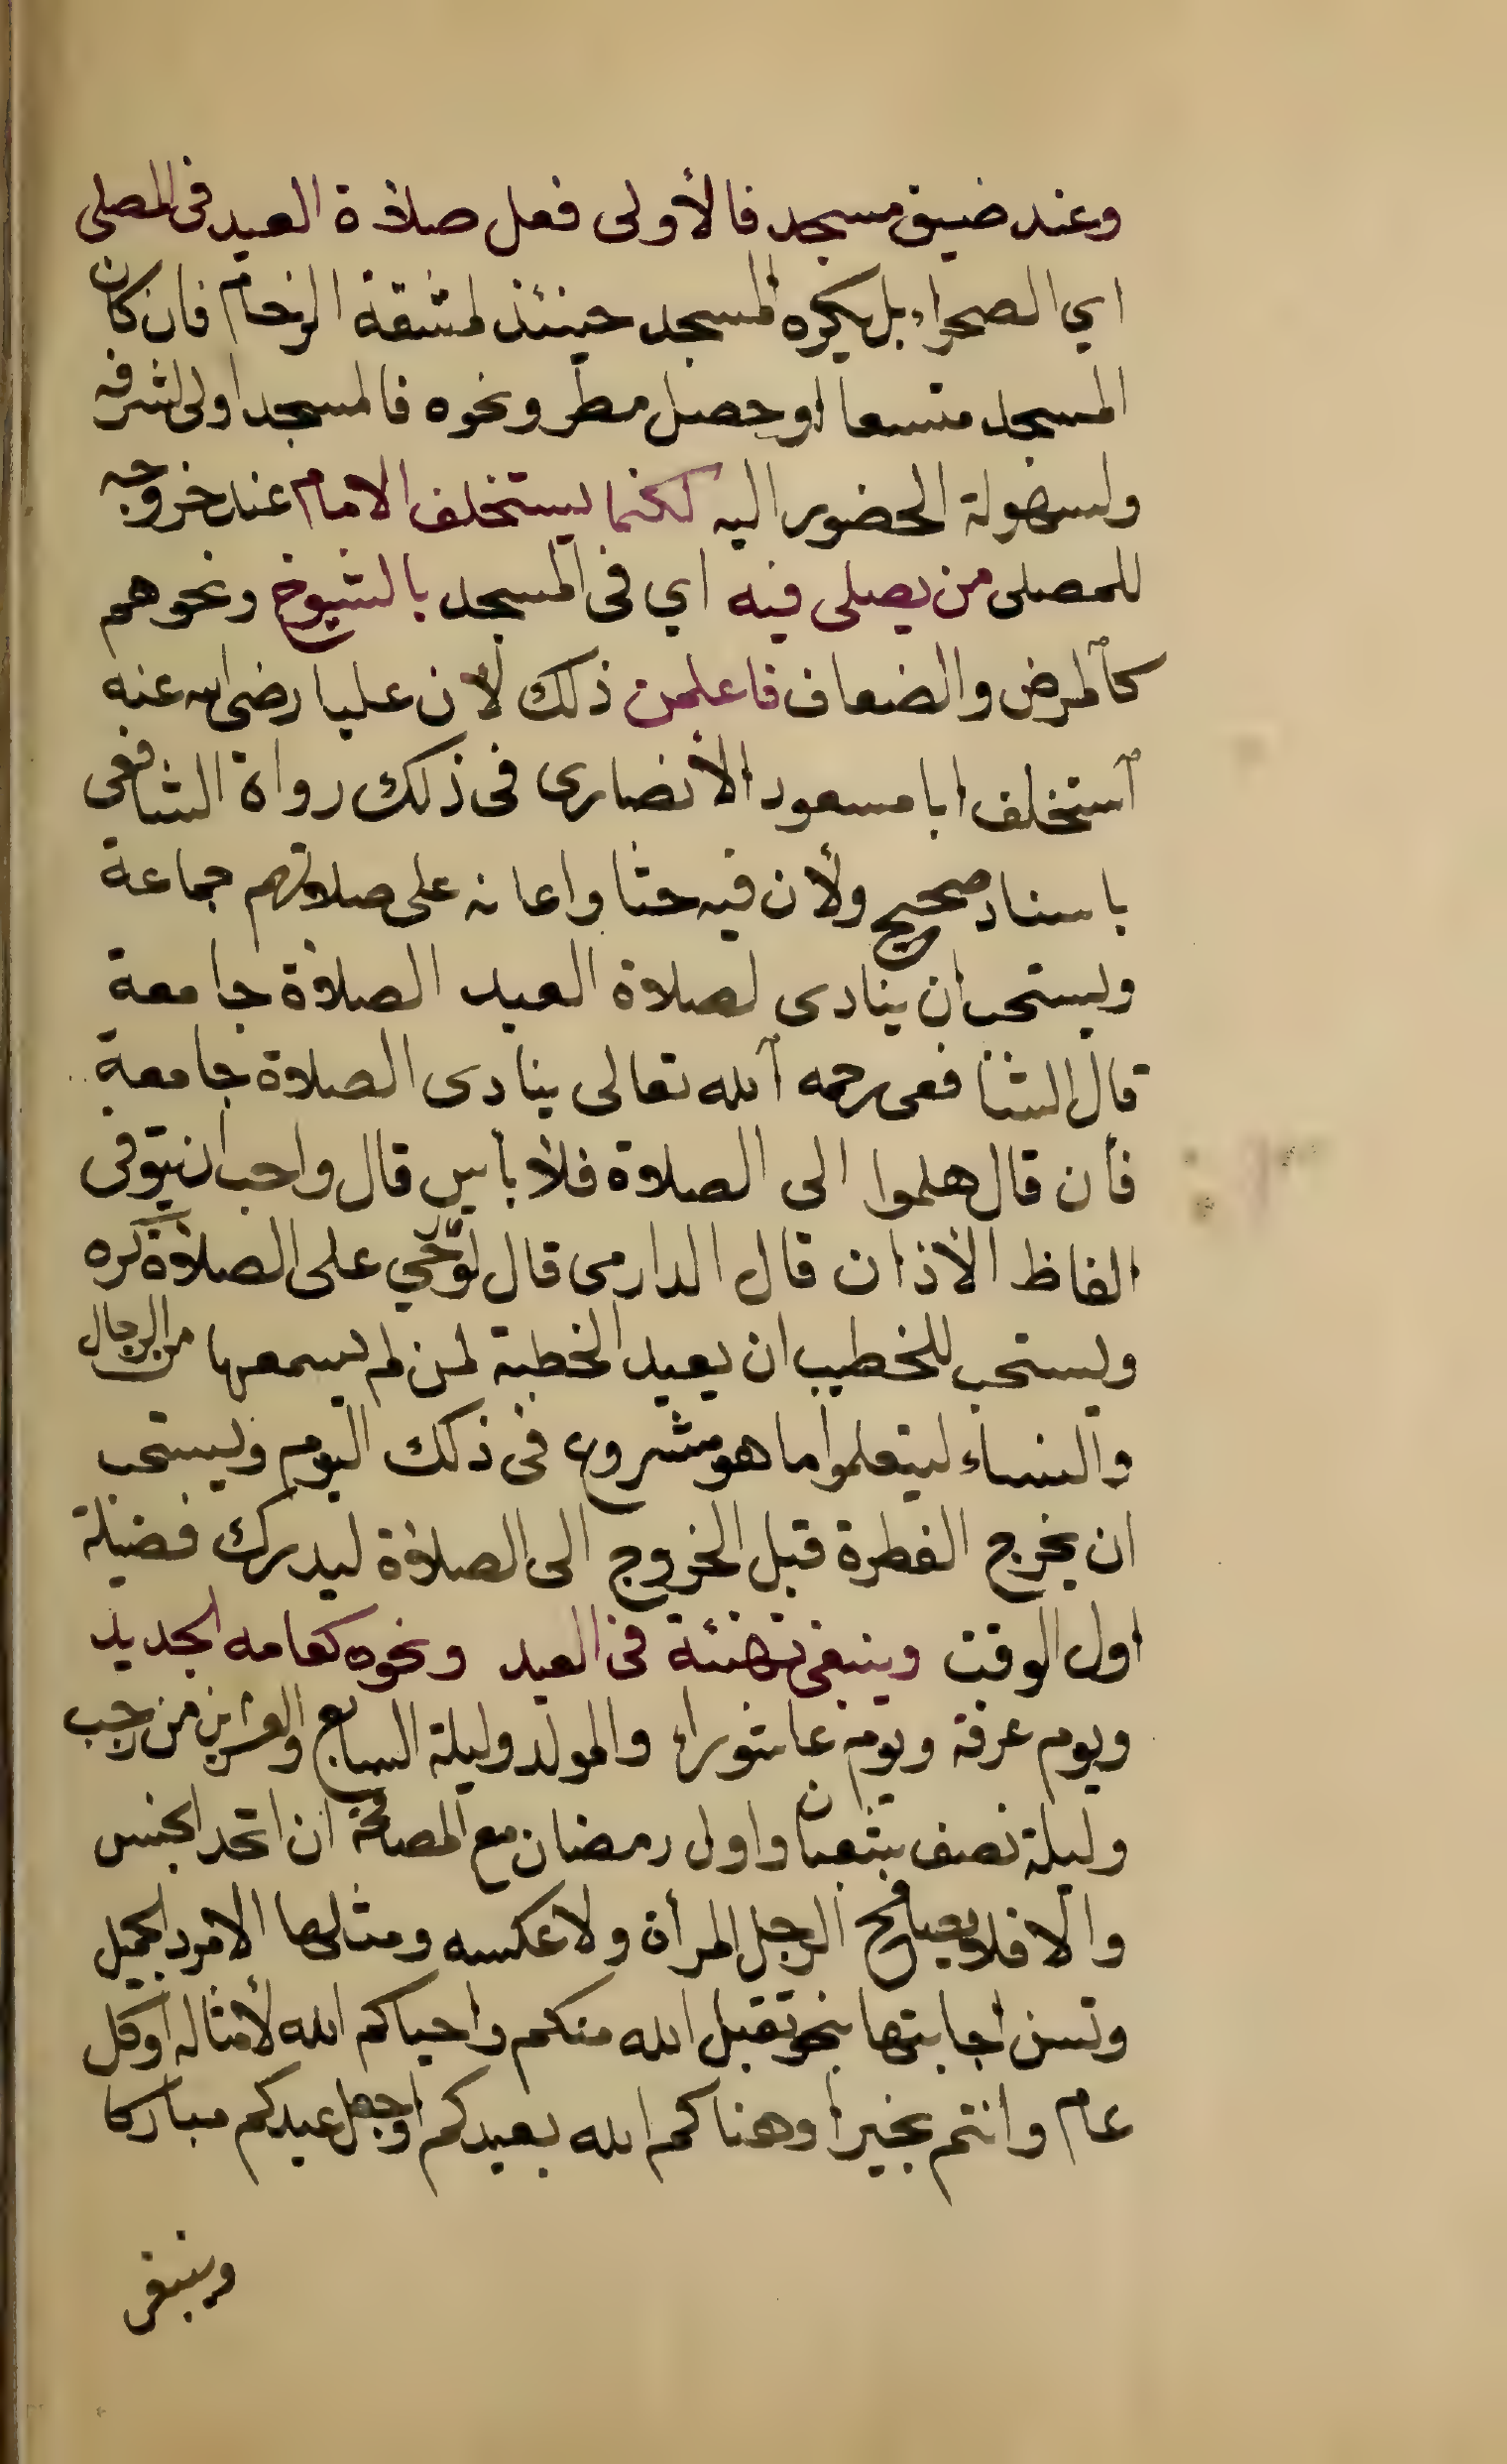 وعند ضيق مسجد فالأولى فعل صلاة العيد فى المصلى
اي الصحراء بل يكره المسجد حينئذ لمشقة الزحام فان كان
المسجد متسعا او حصل مطر ونحوه فالمسجد اولى لشرفه
ولسهولة الحضور اليه لكنما يستخلف الامام عند خروجه
للمصلى من يصلى فيه اي فى المسجد بالشيوخ ونحوهم
كالمرض والضعاف فاعلمن ذلك لأن عليا رضى الله عنه
استخلف ابا مسعود الأنصارى فى ذلك رواة الشافعى
باسناد صحيح ولأن فيه حثا واعانه على صلاتهم جماعة
ويستحب ان ينادى لصلاة العيد الصلاة جامعة
قال الشافعى رحمه الله تعالى ينادى الصلاة جامعة
فأن قال هلموا الى الصلاة فلا بأس قال واحب ان يتوقى
الفاظ الأذان قال الدارمى قال لوحي على الصلاة كره
ويستحب للخطيب ان يعيد الخطبة لمن لم يسمعها من الرجال
والنساء ليتعلموا ما هو مشروع فى ذلك اليوم ويستحب
ان يخرج الفطرة قبل الخروج الى الصلاة ليدرك فضيلة
اول الوقت وينبغى تهنئة فى العيد ونحوه كعامه الجديد
ويوم عرفة ويوم عاشوراء والمولد وليلة السابع والعشرين من رجب
وليلة نصف شعبان واول رمضان مع المصافحة ان اتحد الجنس
والا فلا يصافح الرجل المرأة ولا عكسه ومثالها الامرد الجميل
وتسن اجابتها بنحو تقبل الله منكم واحياكم الله لأمثاله او كل
عام وانتم بخير او هناكم الله بعيدكم او جعل عيدكم مباركا
وينبغى